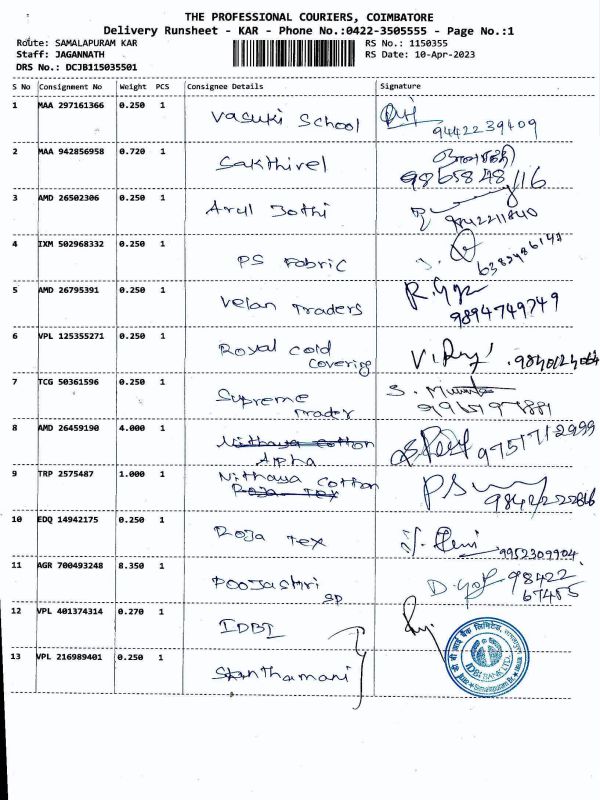 THE PROFESSIONAL COURIERS, COIMBATORE
Delivery Runsheet - KAR - Phone No.:0422-3505555 - Page No.:1
Route: SAMALAPURAM KAR
RS No.: 1150355
Staff: JAGANNATH
RS Date: 10-Apr-2023
DRS No.: DCJB115035501
S No Consignment No Weight PCS Consignee Details Signature
1 MAA 297161366 0.250 1 Vasuki School 9442239409
2 MAA 942856958 0.720 1 Sakthivel 9865848116
3 AMD 26502306 0.250 1 Arul Jothi 9842211840
4 IXM 502968332 0.250 1 PS Fabric
5 AMD 26795391 0.250 1 Velan Traders 9894749749
6 VPL 125355271 0.250 1 Royal Cold
Covering
7 TCG 50361596 0.250 1 Supreme
Trader
8 AMD 26459190 4.000 1 Nithaya Cotton 9751712999
Alpha
9 TRP 2575487 1.000 1 Nithaya Cotton
Roja Tex
10 EDQ 14942175 0.250 1 Roja Tex 9952309904
11 AGR 700493248 8.350 1 Poojashri 98422
SP 67455
12 VPL 401374314 0.270 1 IDBI
13 VPL 216989401 0.250 1 Santhamani
IDBI BANK LTD.